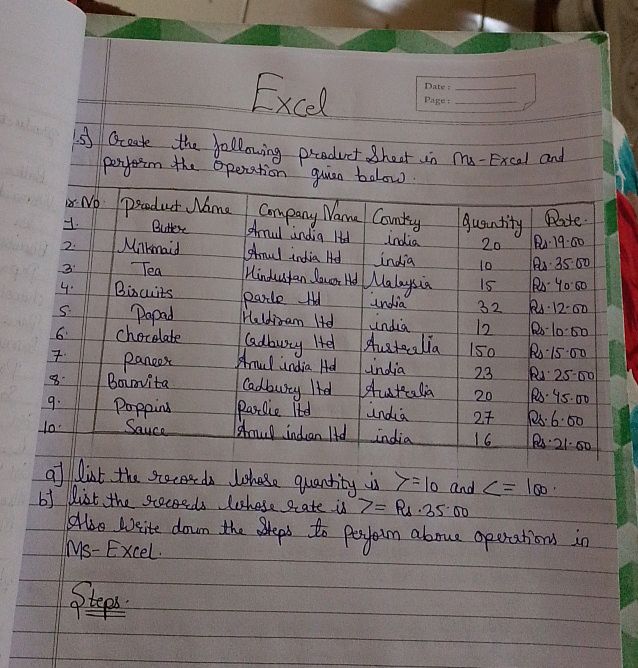 Excel
Date :
Page :
15) Create the following product Sheet in Ms-Excel and
perform the operation given below.
Sr.No. Product Name Company Name Country Quantity Rate.
1. Butter Amul india ltd india 20 Rs.19.00
2. Milkmaid Amul india ltd india 10 Rs.35.00
3. Tea Hindustan lever ltd Malaysia 15 Rs.40.00
4. Biscuits parle ltd india 32 Rs.12.00
5. Papad Haldiram ltd india 12 Rs.10.00
6. Chocolate Cadbury ltd Australia 150 Rs.15.00
7. Paneer Amul india ltd india 23 Rs.25.00
8. Bournvita Cadbury ltd Australia 20 Rs.45.00
9. Poppins Parlie ltd india 27 Rs.6.00
10. Sauce Amul indian ltd india 16 Rs.21.00
a] list the records whose quantity is >=10 and <= 100.
b] list the records whose rate is >= Rs.35.00
Also Write down the Steps to perform above operations in
MS-Excel.
Steps.